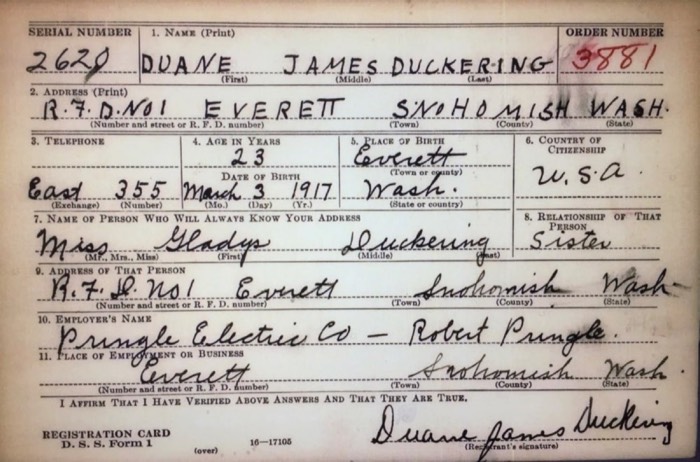 SERIAL NUMBER 1. NAME (Print) ORDER NUMBER
2620 DUANE JAMES DUCKERING 3881
(First) (Middle) (Last)
2. ADDRESS (Print)
R.F.D. NO 1 EVERETT SNOHOMISH WASH.
(Number and street or R. F. D. number) (Town) (County) (State)
3. TELEPHONE 4. AGE IN YEARS 5. PLACE OF BIRTH 6. COUNTRY OF CITIZENSHIP
23 Everett
DATE OF BIRTH (Town or county)
East 355 March 3 1917 Wash. U.S.A.
(Exchange) (Number) (Mo.) (Day) (Yr.) (State or country)
7. NAME OF PERSON WHO WILL ALWAYS KNOW YOUR ADDRESS 8. RELATIONSHIP OF THAT PERSON
Miss Gladys Duckering Sister
(Mr., Mrs., Miss) (First) (Middle) (Last)
9. ADDRESS OF THAT PERSON
R.F.D. No 1 Everett Snohomish Wash
(Number and street or R. F. D. number) (Town) (County) (State)
10. EMPLOYER'S NAME
Pringle Electric Co — Robert Pringle.
11. PLACE OF EMPLOYMENT OR BUSINESS
Everett Snohomish Wash.
(Number and street or R. F. D. number) (Town) (County) (State)
I AFFIRM THAT I HAVE VERIFIED ABOVE ANSWERS AND THAT THEY ARE TRUE.
Duane James Duckering
REGISTRATION CARD
D. S. S. Form 1 (over) 16—17105 (Registrant's signature)